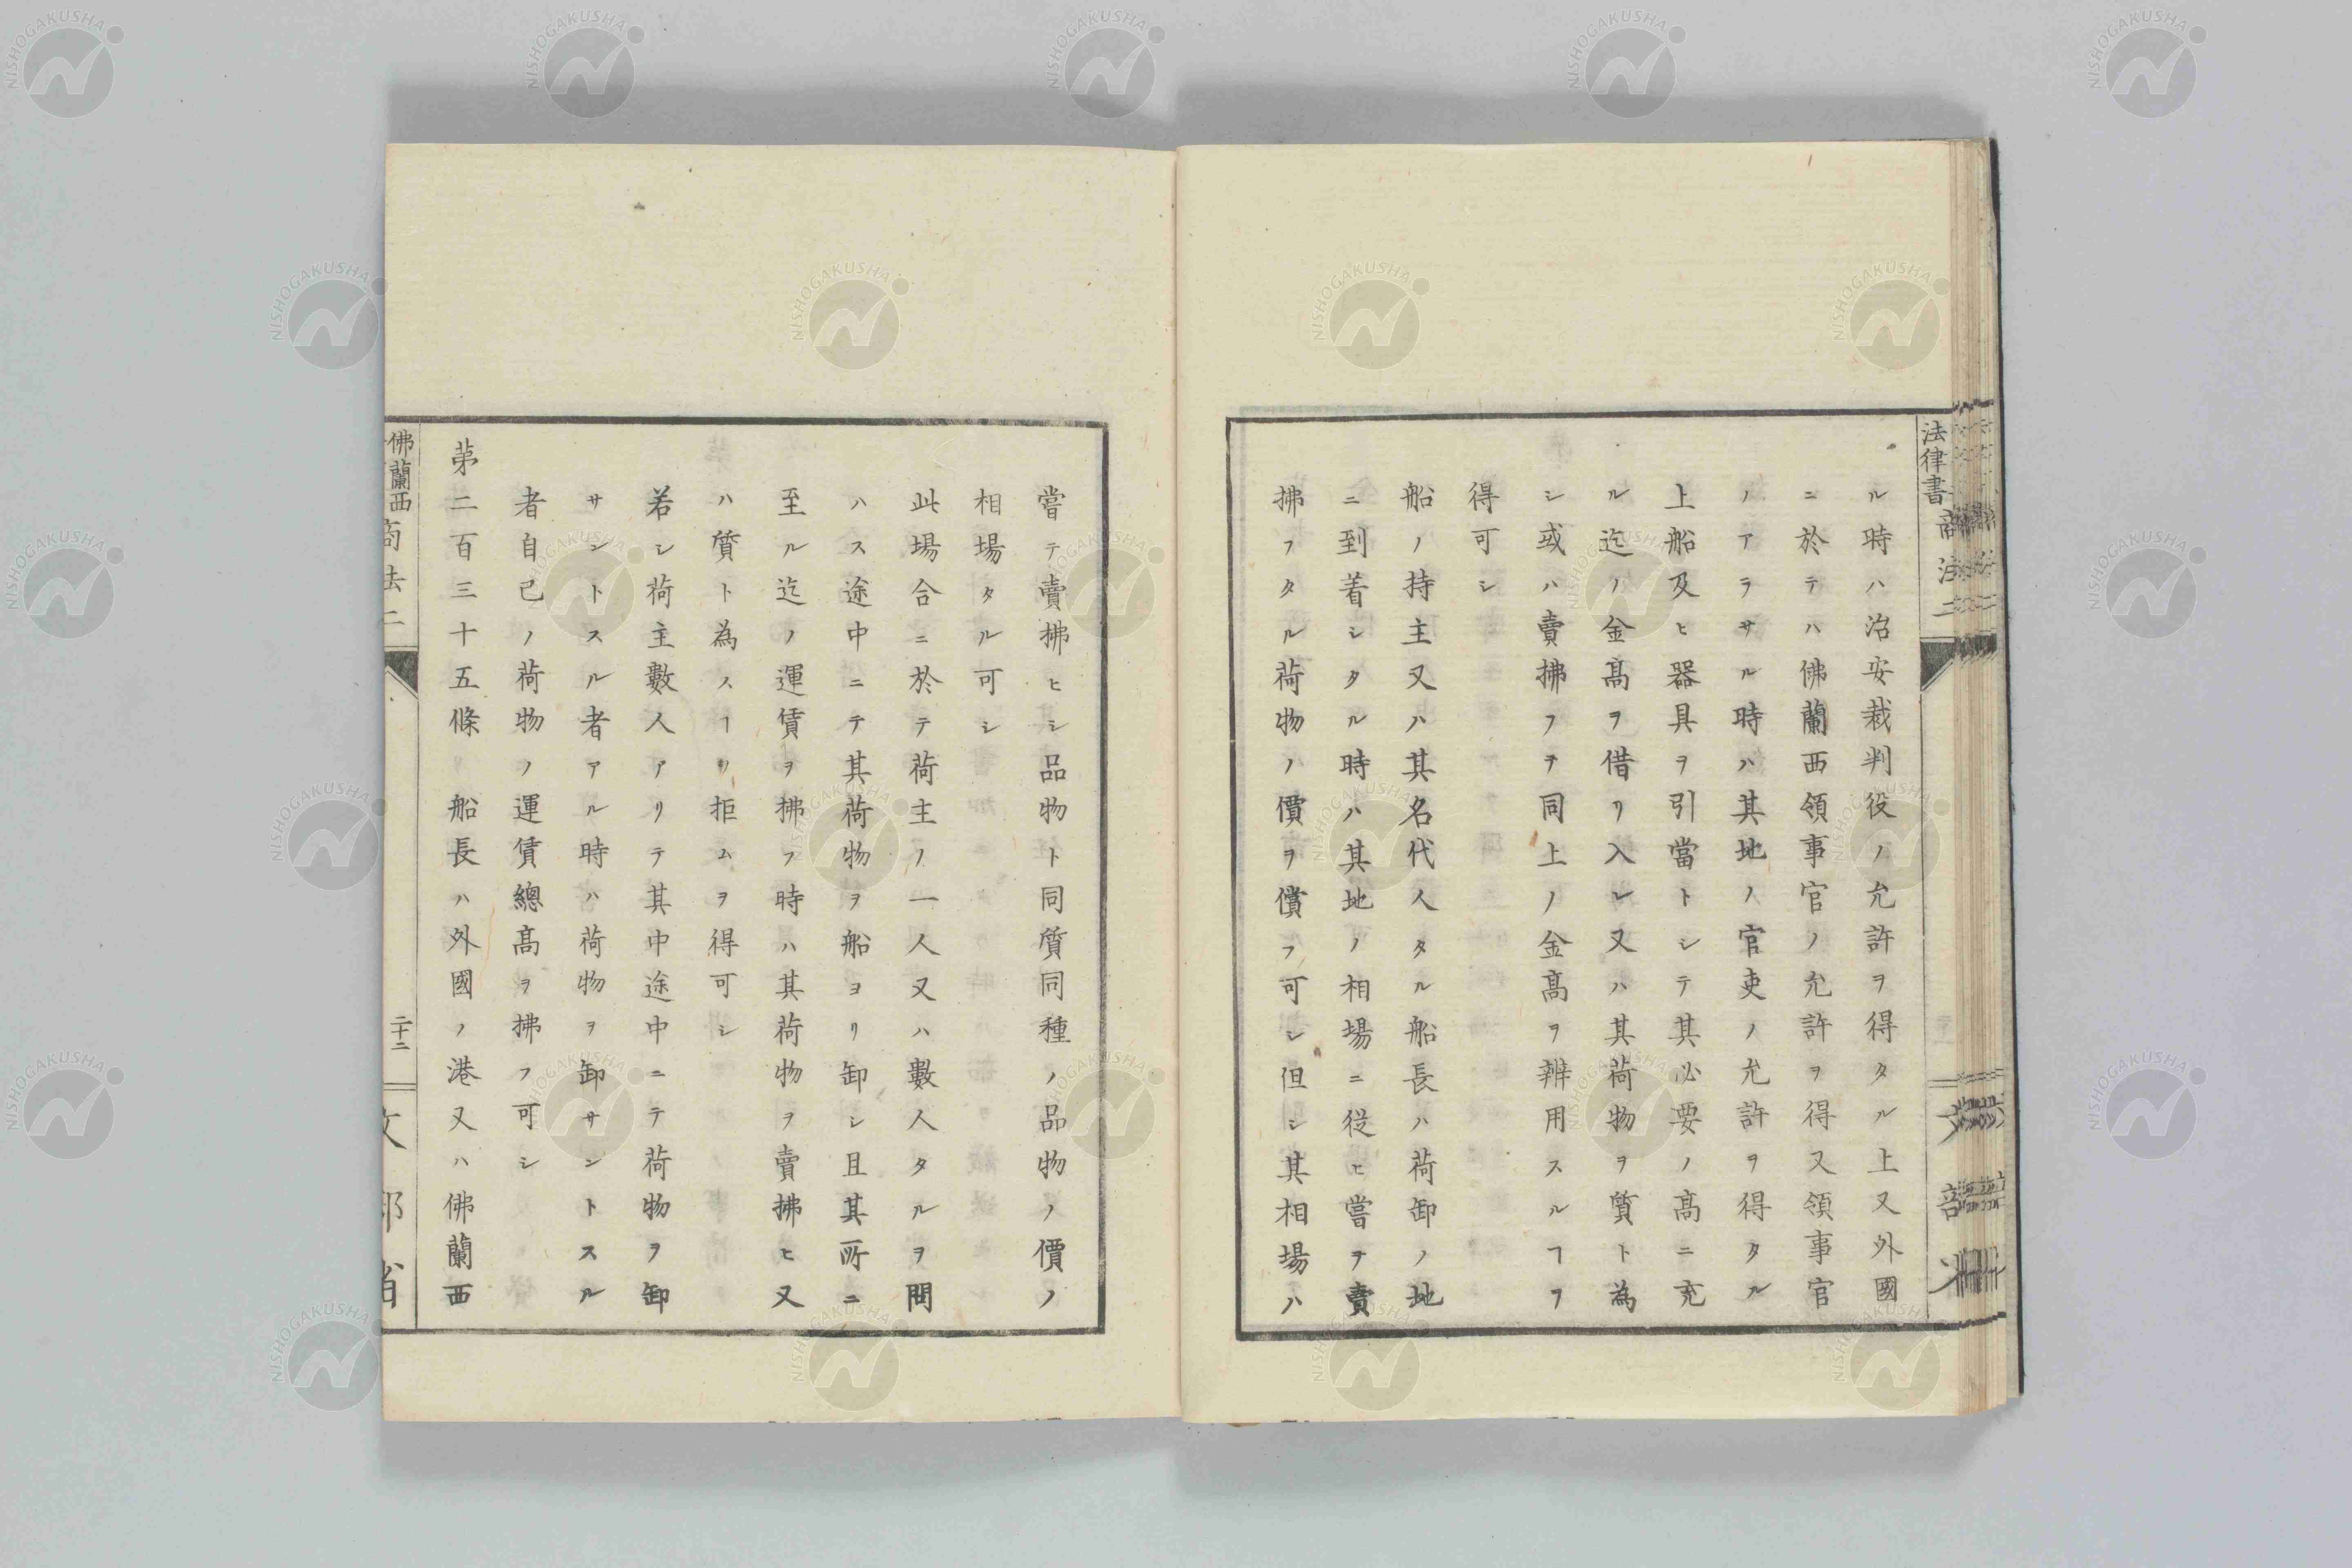 法律書 商法二
ル時ハ治安裁判役ノ允許ヲ得タル上又外國
ニ於テハ佛蘭西領事官ノ允許ヲ得又領事官
ノアラサル時ハ其地ノ官吏ノ允許ヲ得タル
上船及ヒ器具ヲ引當トシテ其必要ノ髙ニ充
ル迄ノ金髙ヲ借リ入レ又ハ其荷物ヲ質ト為
シ或ハ賣拂フヲ同上ノ金髙ヲ辨用スルヿヲ
得可シ
船ノ持主又ハ其名代人タル船長ハ荷卸ノ地
ニ到着シタル時ハ其地ノ相場ニ従ヒ嘗テ賣
拂フタル荷物ノ價ヲ償フ可シ但シ其相場ハ
嘗テ賣拂ヒシ品物ト同質同種ノ品物ノ價ノ
相場タル可シ
此場合ニ於テ荷主ノ一人又ハ數人タルヲ問
ハス途中ニテ其荷物ヲ船ヨリ卸シ且其所ニ
至ル迄ノ運賃ヲ拂フ時ハ其荷物ヲ賣拂ヒ又
ハ質ト為スヿヲ拒ムヲ得可シ
若シ荷主數人アリテ其中途中ニテ荷物ヲ卸
サントスル者アル時ハ荷物ヲ卸サントスル
者自己ノ荷物ノ運賃總髙ヲ拂フ可シ
第二百三十五條 船長ハ外國ノ港又ハ佛蘭西
佛蘭西商法二 二十二 文部省
NISHOGAKUSHA